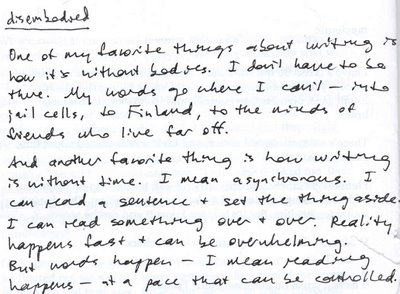 disembodied
One of my favorite things about writing is
how it's without bodies. I don't have to be
there. My words go where I can't – into
jail cells, to Finland, to the minds of
friends who live far off.
And another favorite thing is how writing
is without time. I mean asynchronous. I
can read a sentence + set the thing aside.
I can read something over + over. Reality
happens fast + can be overwhelming.
But words happen – I mean reading
happens – at a pace that can be controlled.